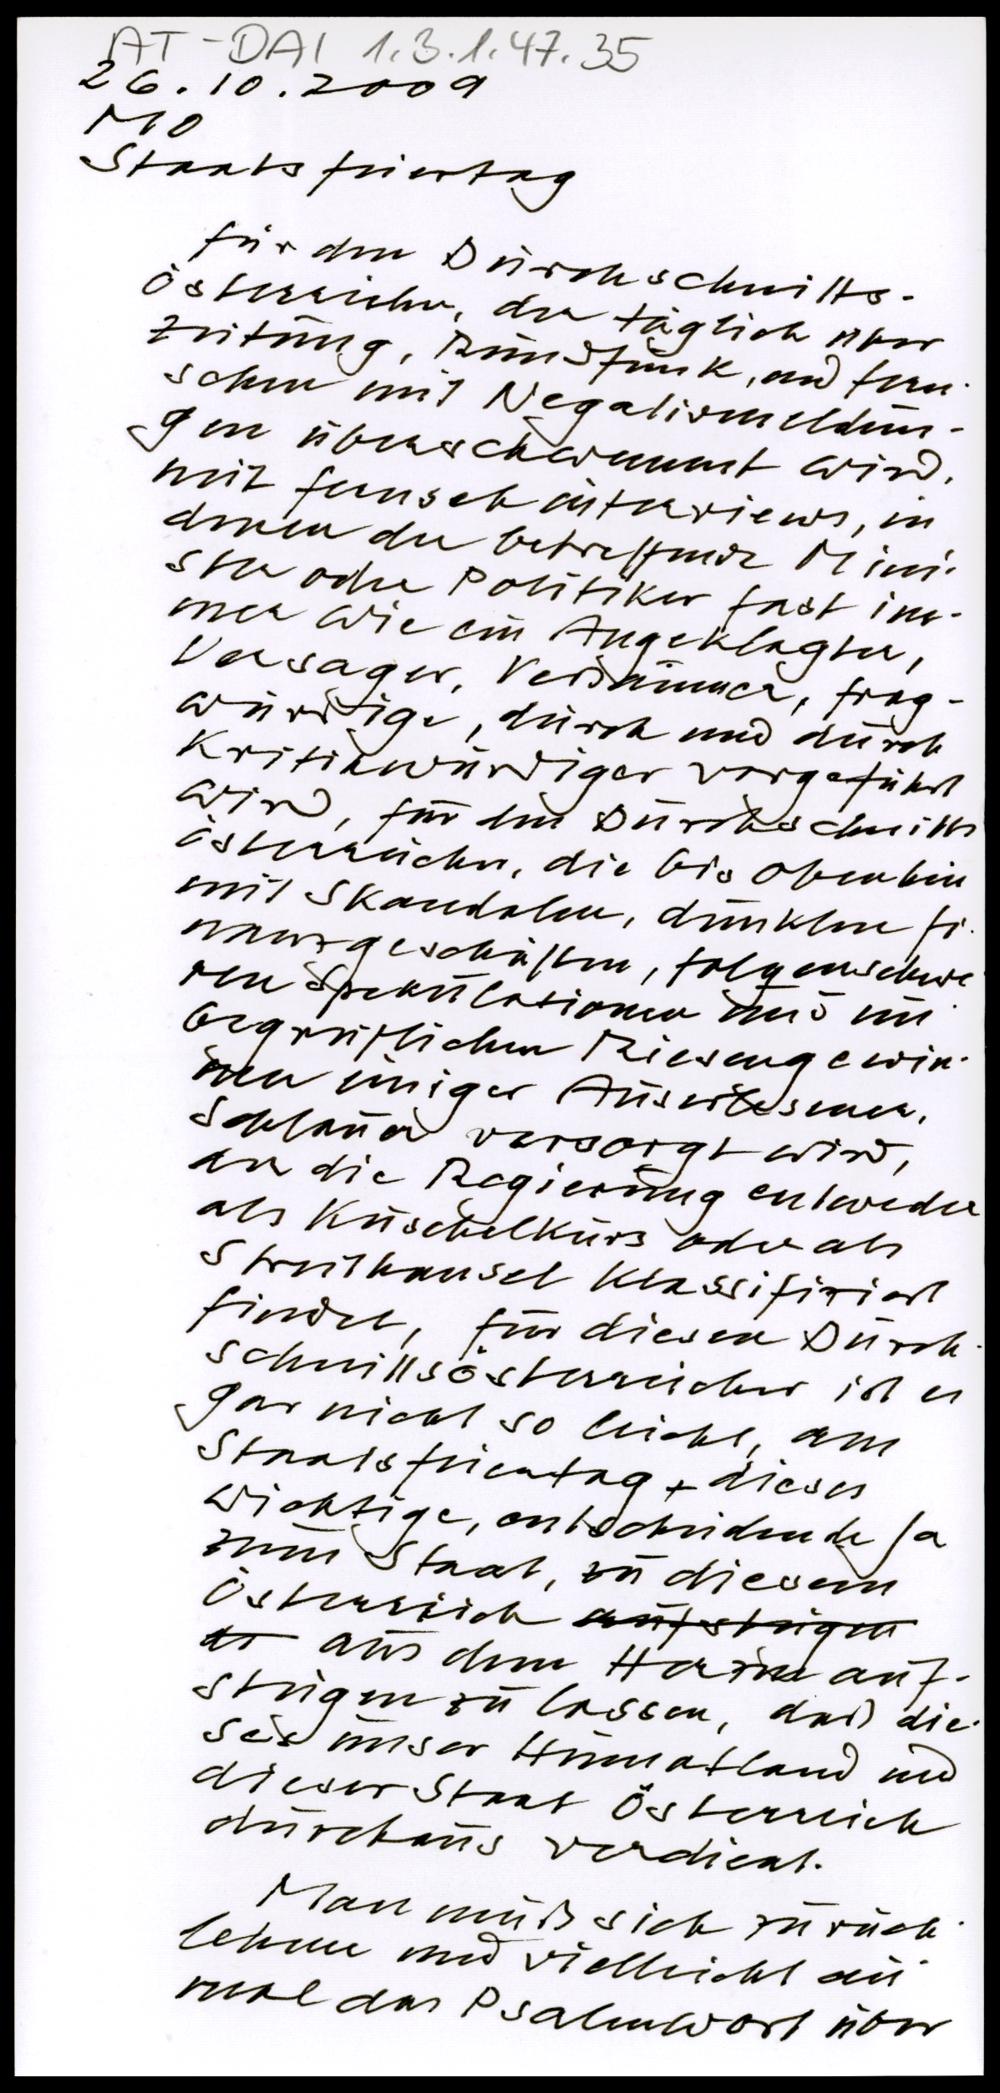 AT-DAI 1.3.1.47.35
26.10.2009
MO
Staatsfeiertag
für den Durchschnitts-
österreicher, der täglich über
Zeitung, Rundfunk, und Fern-
sehen mit Negativmeldun-
gen überschwemmt wird,
mit Fernsehinterviews, in
denen der betreffende Mini-
ster oder Politiker fast im-
mer wie ein Angeklagter,
Versager, Versäumer, frag-
würdige, durch und durch
Kritikwürdiger vorgeführt
wird, für den Durchschnitts
österreicher, die bis obenhin
mit Skandalen, dunklen Fi-
nanzgeschäften, folgenschwe-
ren Spekulationen und un-
begreiflichen Riesengewin-
nen einiger Auserlesener,
Schlauer versorgt wird,
der die Regierung entweder
als Kuschelkurs oder als
Streithansel klassifiziert
findet, für diesen Durch-
schnittsösterreicher ist es
gar nicht so leicht, am
Staatsfeiertag dieses
wichtige, entscheidende Ja
zum Staat, zu diesem
Österreich aufsteigen
aus dem Herzen auf-
steigen zu lassen, daß die-
ses unser Heimatland und
dieser Staat Österreich
durchaus verdient.
Man muß sich zurück-
lehnen und vielleicht ein-
mal das Psalmwort über